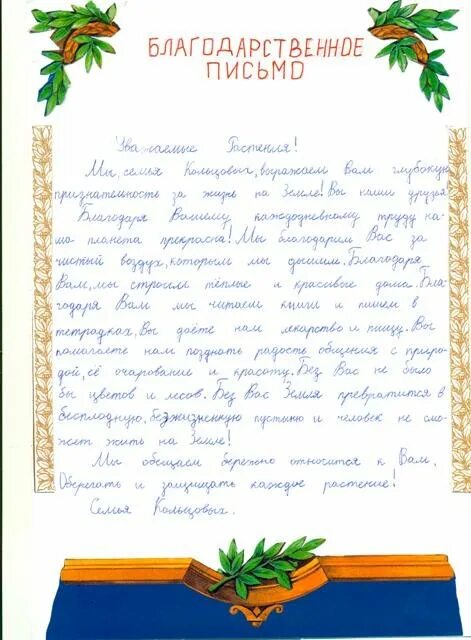 БЛАГОДАРСТВЕННОЕ
ПИСЬМО
Уважаемые Растения!
Мы, семья Кольцовых, выражаем Вам глубокую
признательность за жизнь на Земле! Вы наши друзья
Благодаря Вашему каждодневному труду на-
ша планета прекрасна! Мы благодарим Вас за
чистый воздух, которым мы дышим. Благодаря
Вам, мы строим тёплые и красивые дома. Бла-
годаря Вам мы читаем книги и пишем в
тетрадках, Вы даёте нам лекарство и пищу. Вы
помагаете нам познать радость общения с приро-
дой, её очарование и красоту. Без Вас не было
бы цветов и лесов. Без Вас Земля превратится в
бесплодную, безжизненную пустыню и человек не смо-
жет жить на Земле!
Мы обещаем бережно относится к Вам,
Оберегать и защищать каждое растение!
Семья Кольцовых.